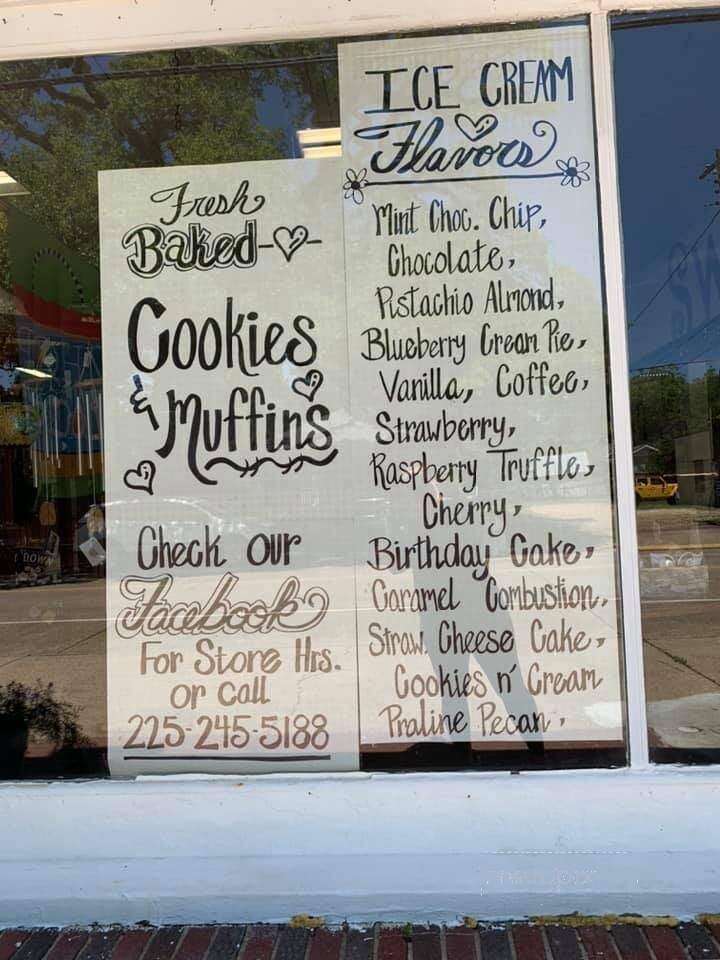 Fresh
Baked
Cookies
& Muffins
Check our
Facebook
For Store Hrs.
or call
225-245-5188
ICE CREAM
Flavors
Mint Choc. Chip,
Chocolate,
Pistachio Almond,
Blueberry Cream Pie,
Vanilla, Coffee,
Strawberry,
Raspberry Truffle,
Cherry,
Birthday Cake,
Caramel Combustion,
Straw. Cheese Cake,
Cookies n' Cream
Praline Pecan,
DOWN
SW